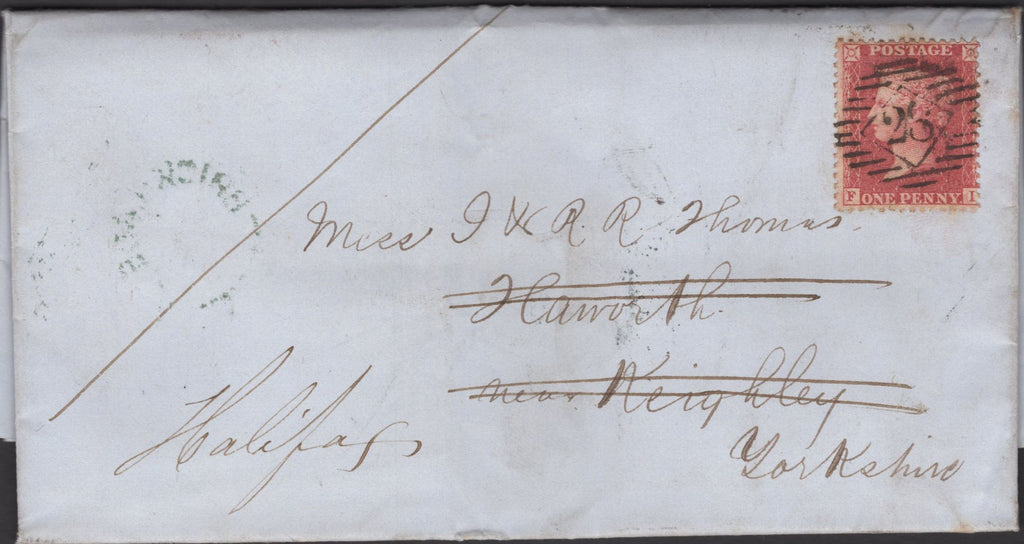 POSTAGE
28
F ONE PENNY I
Miss J & R. R. Thomas.
Haworth
near Keighley
Yorkshire
Halifax